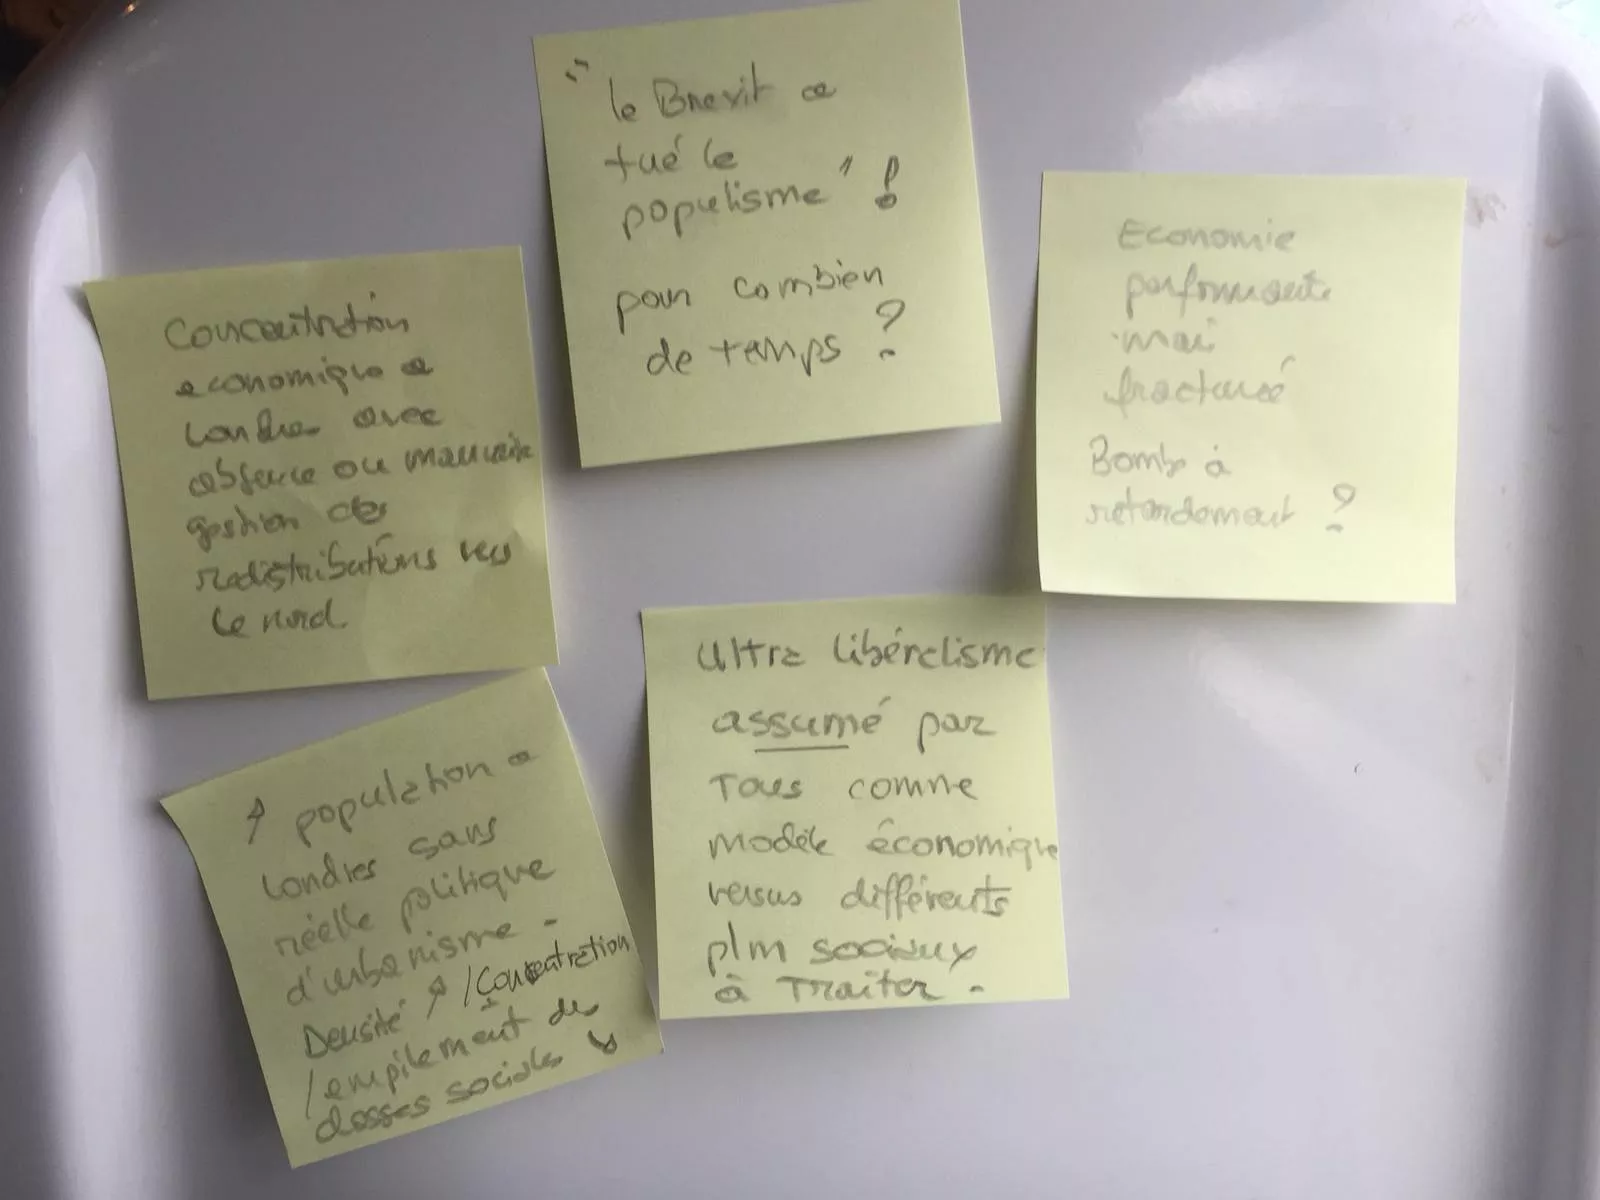 "le Brexit a
tué le
populisme" !
pour combien
de temps ?
Concentration
economique a
Londres avec
absence ou mauvaise
gestion des
redistributions vers
le nord
Economie
performante
mai
fracturé
Bombe à
retardement ?
Ultra libéralisme
assumé par
Tous comme
modèle économique
versus différents
plm sociaux
à Traiter -
↗ population a
Londres sans
réelle politique
d'urbanisme -
Densité ↗ / Concentration
/ empilement des
classes sociales ↘